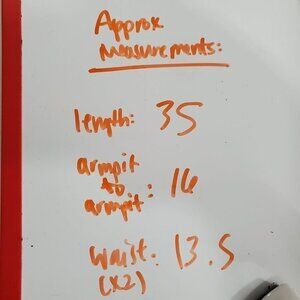 Approx
measurements:
length: 35
armpit
to
armpit: 16
waist: 13.5
(x2)